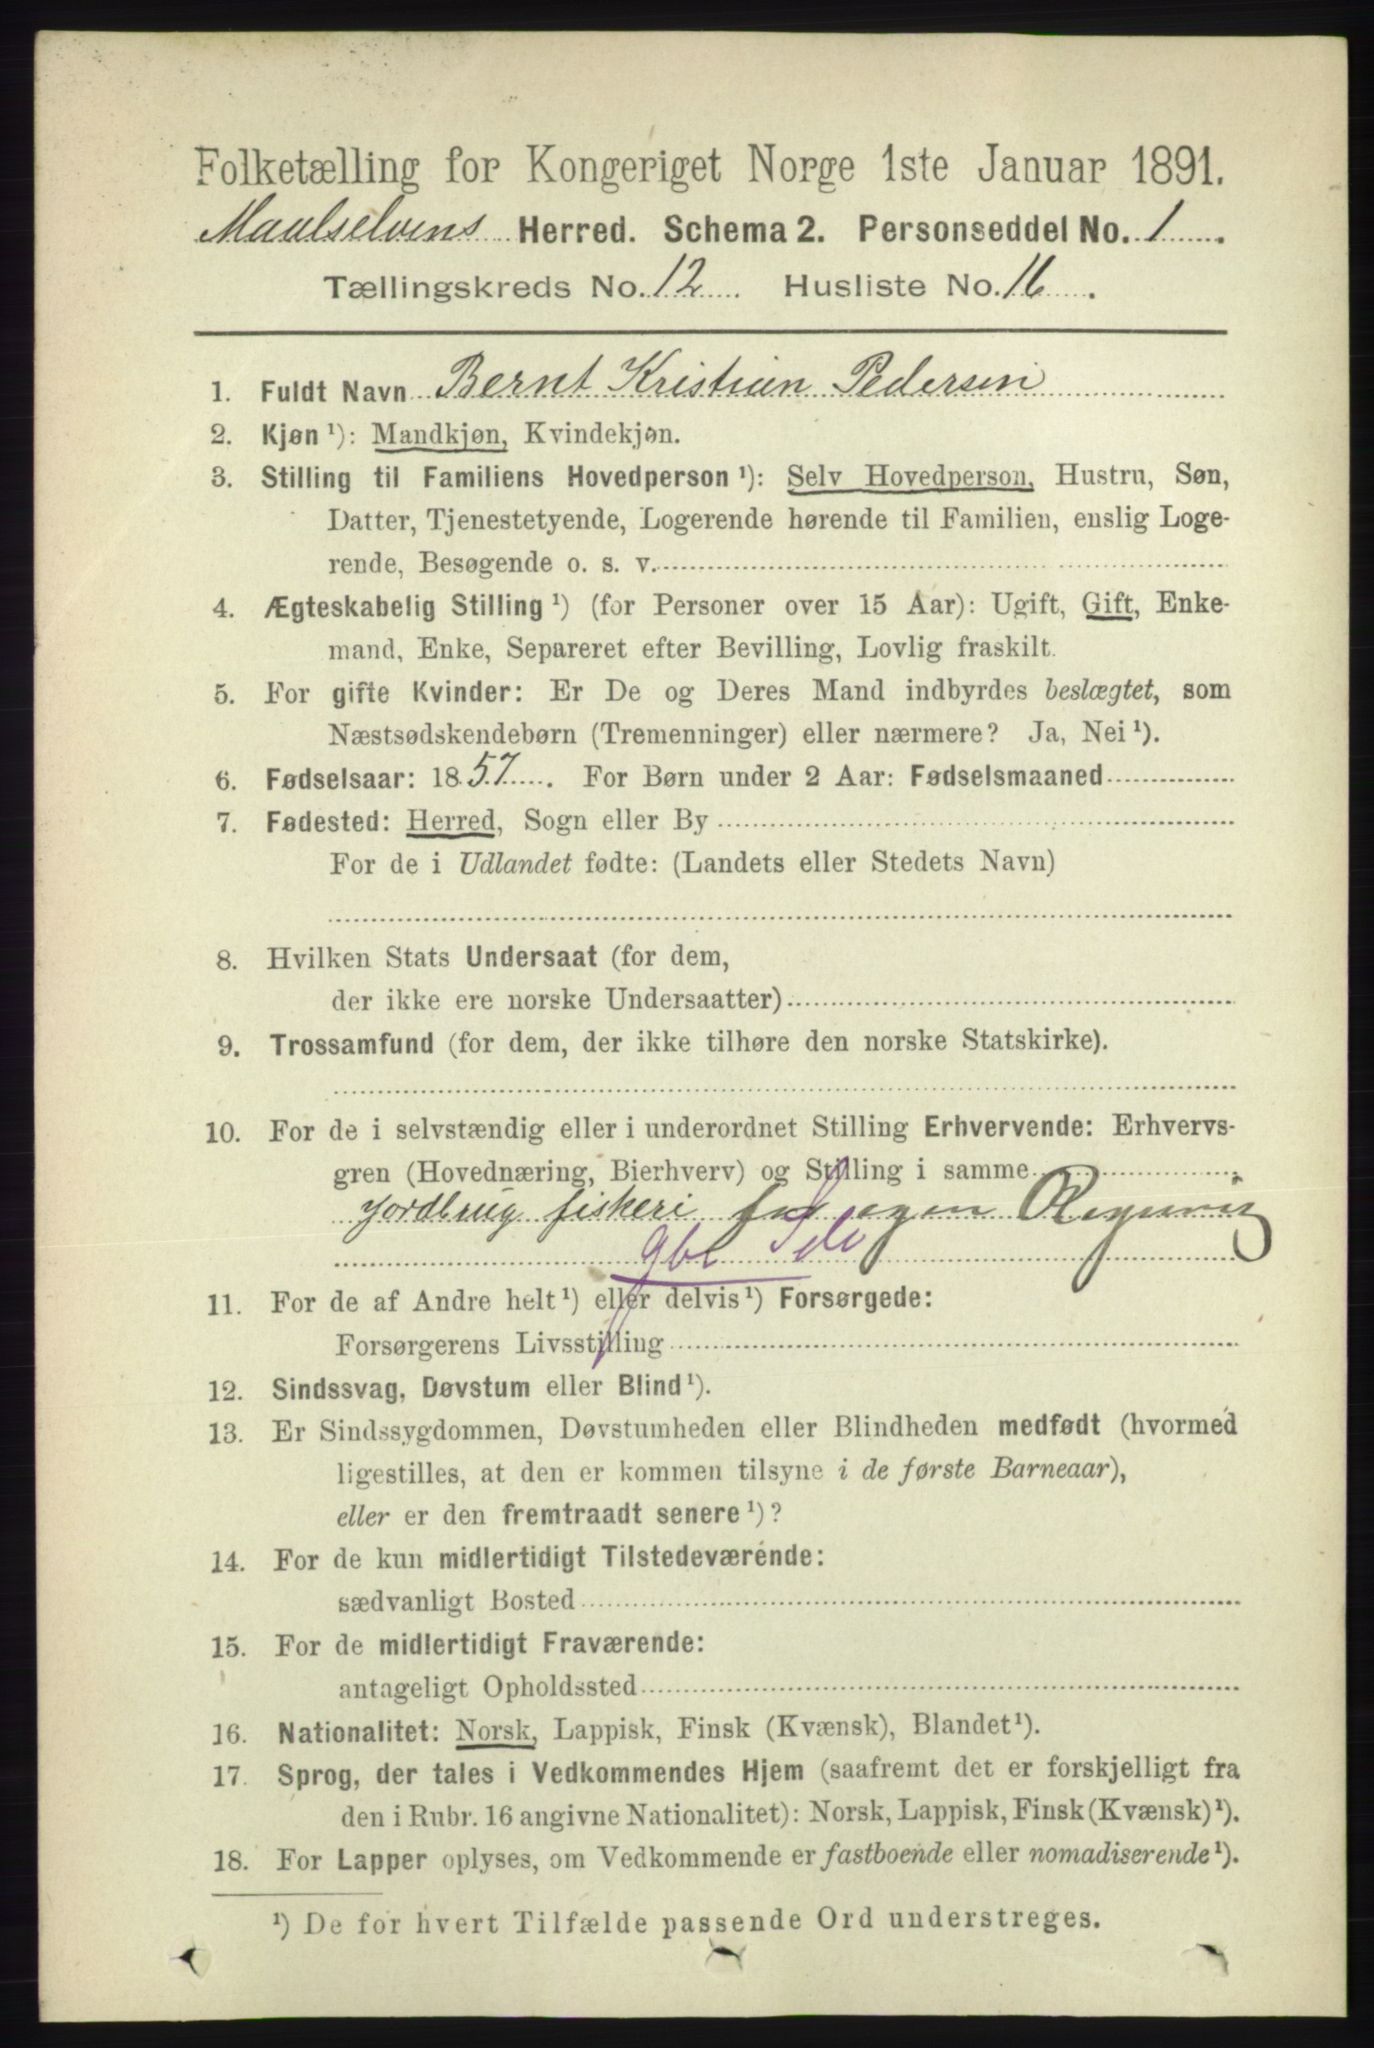 Folketælling for Kongeriget Norge 1ste Januar 1891.
Maalselvens Herred. Schema 2. Personseddel No. 1
Tællingskreds No. 12 Husliste No. 16
1. Fuldt Navn Bernt Kristian Pedersen
2. Kjøn ¹): Mandkjøn, Kvindekjøn.
3. Stilling til Familiens Hovedperson ¹): Selv Hovedperson, Hustru, Søn,
Datter, Tjenestetyende, Logerende hørende til Familien, enslig Loge-
rende, Besøgende o. s. v.
4. Ægteskabelig Stilling ¹) (for Personer over 15 Aar): Ugift, Gift, Enke-
mand, Enke, Separeret efter Bevilling, Lovlig fraskilt.
5. For gifte Kvinder: Er De og Deres Mand indbyrdes beslægtet, som
Næstsødskendebørn (Tremenninger) eller nærmere? Ja, Nei ¹).
6. Fødselsaar: 1857. For Børn under 2 Aar: Fødselsmaaned
7. Fødested: Herred, Sogn eller By
For de i Udlandet fødte: (Landets eller Stedets Navn)
8. Hvilken Stats Undersaat (for dem,
der ikke ere norske Undersaatter)
9. Trossamfund (for dem, der ikke tilhøre den norske Statskirke).
10. For de i selvstændig eller i underordnet Stilling Erhvervende: Erhvervs-
gren (Hovednæring, Bierhverv) og Stilling i samme
Jordbrug fiskeri for egen Regning
gbr
11. For de af Andre helt ¹) eller delvis ¹) Forsørgede:
Forsørgerens Livsstilling
12. Sindssvag, Døvstum eller Blind ¹).
13. Er Sindssygdommen, Døvstumheden eller Blindheden medfødt (hvormed
ligestilles, at den er kommen tilsyne i de første Barneaar),
eller er den fremtraadt senere ¹)?
14. For de kun midlertidigt Tilstedeværende:
sædvanligt Bosted
15. For de midlertidigt Fraværende:
antageligt Opholdssted
16. Nationalitet: Norsk, Lappisk, Finsk (Kvænsk), Blandet ¹).
17. Sprog, der tales i Vedkommendes Hjem (saafremt det er forskjelligt fra
den i Rubr. 16 angivne Nationalitet): Norsk, Lappisk, Finsk (Kvænsk) ¹).
18. For Lapper oplyses, om Vedkommende er fastboende eller nomadiserende ¹).
¹) De for hvert Tilfælde passende Ord understreges.